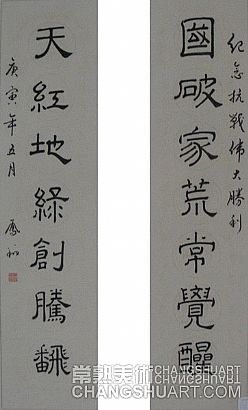 紀念抗戰偉大勝利
國破家荒常覺醒
天紅地綠創騰飜
庚寅年五月
常熟美術
CHANGSHUART.COM